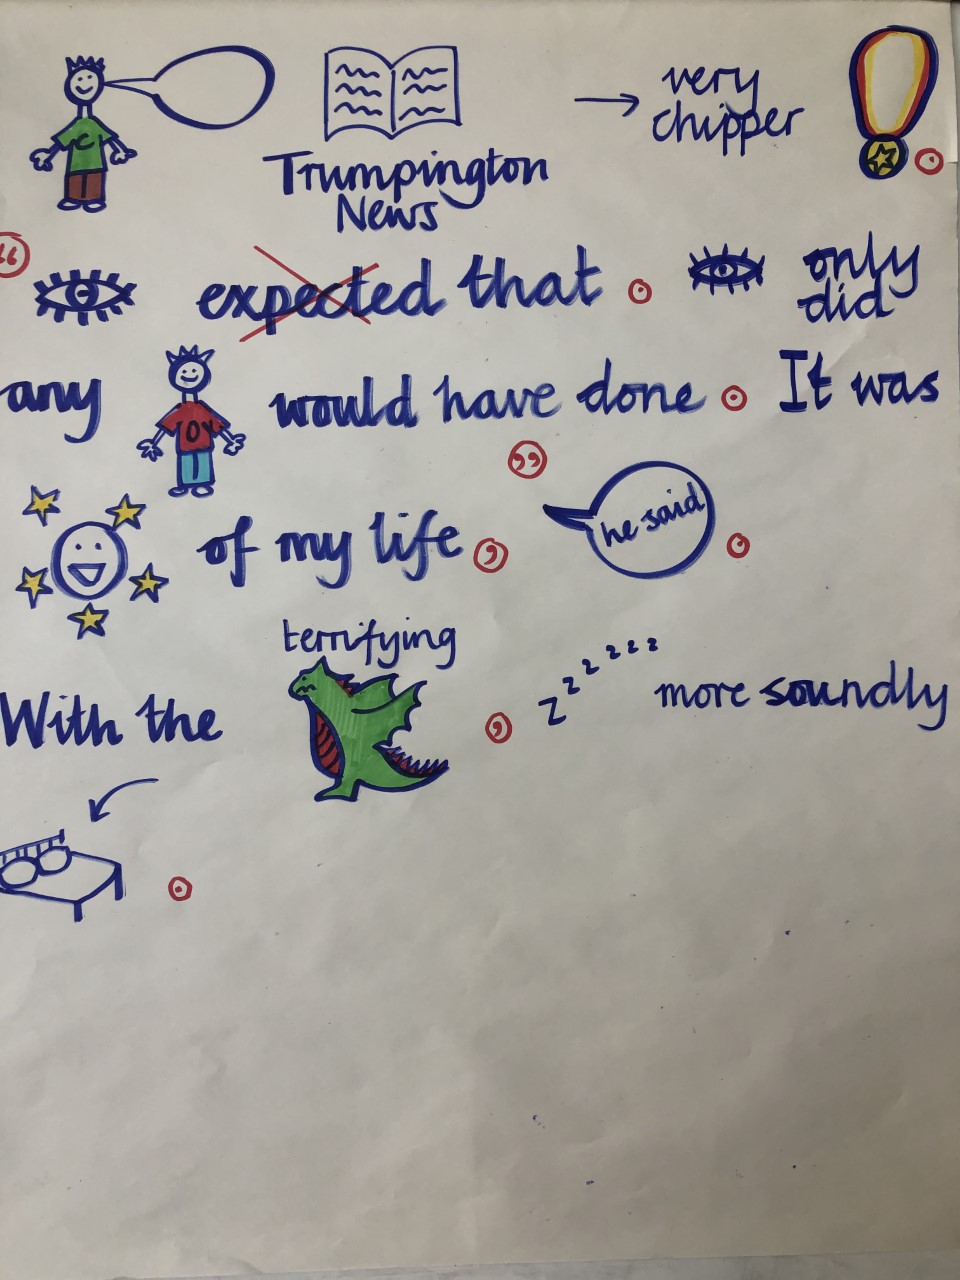 very
chipper
C
Trumpington
News
“
expected that . only
did
any would have done . It was
OY
”
of my life , he said .
terrifying
With the , z z z z z z more soundly
.